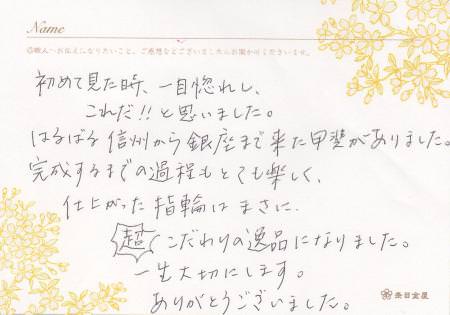 Name
◎職人へお伝えになりたいこと、ご感想などございましたらお聞かせくださいませ。
初めて見た時、一目惚れし、
これだ!!と思いました。
はるばる信州から銀座まで来た甲斐がありました。
完成するまでの過程もとても楽しく、
仕上がった指輪はまさに、
超 こだわりの逸品になりました。
一生大切にします。
ありがとうございました。
杢目金屋